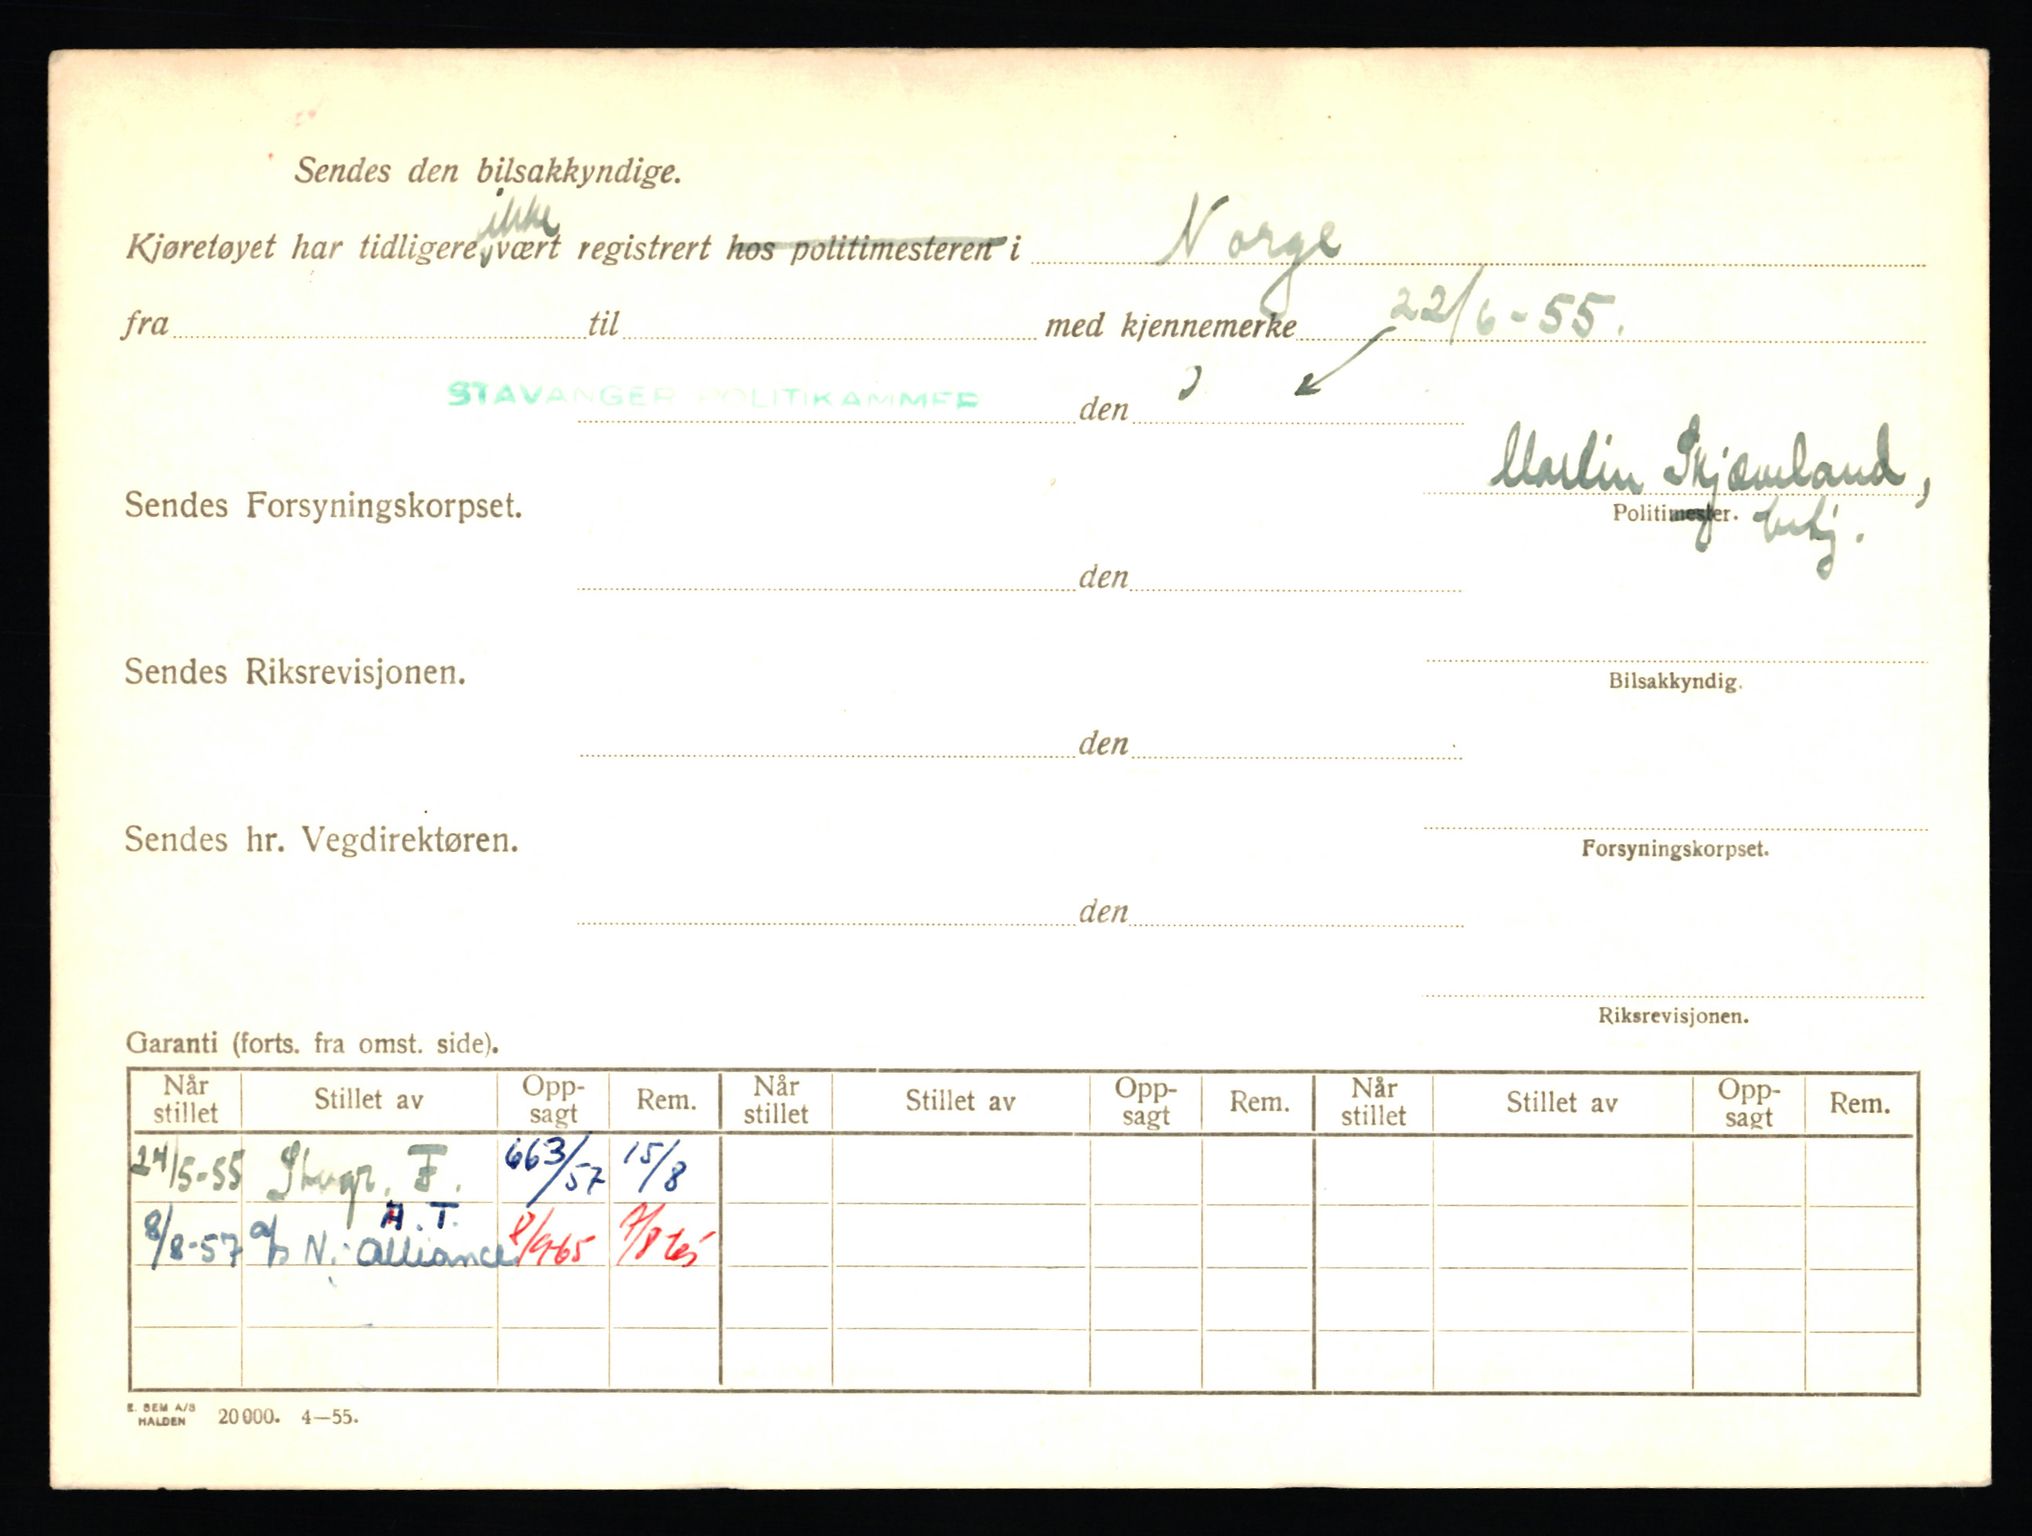 Sendes den bilsakkyndige.
ikke
Kjøretøyet har tidligere, vært registrert hos politimesteren i Norge
fra til med kjennemerke 22/6-55.
STAVANGER POLITIKAMMER den
Martin Skjæveland,
Sendes Forsyningskorpset.
Politimester. betj.
den
Sendes Riksrevisjonen.
Bilsakkyndig.
den
Sendes hr. Vegdirektøren.
Forsyningskorpset.
den
Riksrevisjonen.
Garanti (forts. fra omst. side).
Når stillet Stillet av Opp-sagt Rem. Når stillet Stillet av Opp-sagt Rem. Når stillet Stillet av Opp-sagt Rem.
24/5-55 F. 663/57 15/8
A.T.
8/8-57 a/s N. Alliance /9-65 /8 65
E. SEM A/S
HALDEN 20000. 4—55.